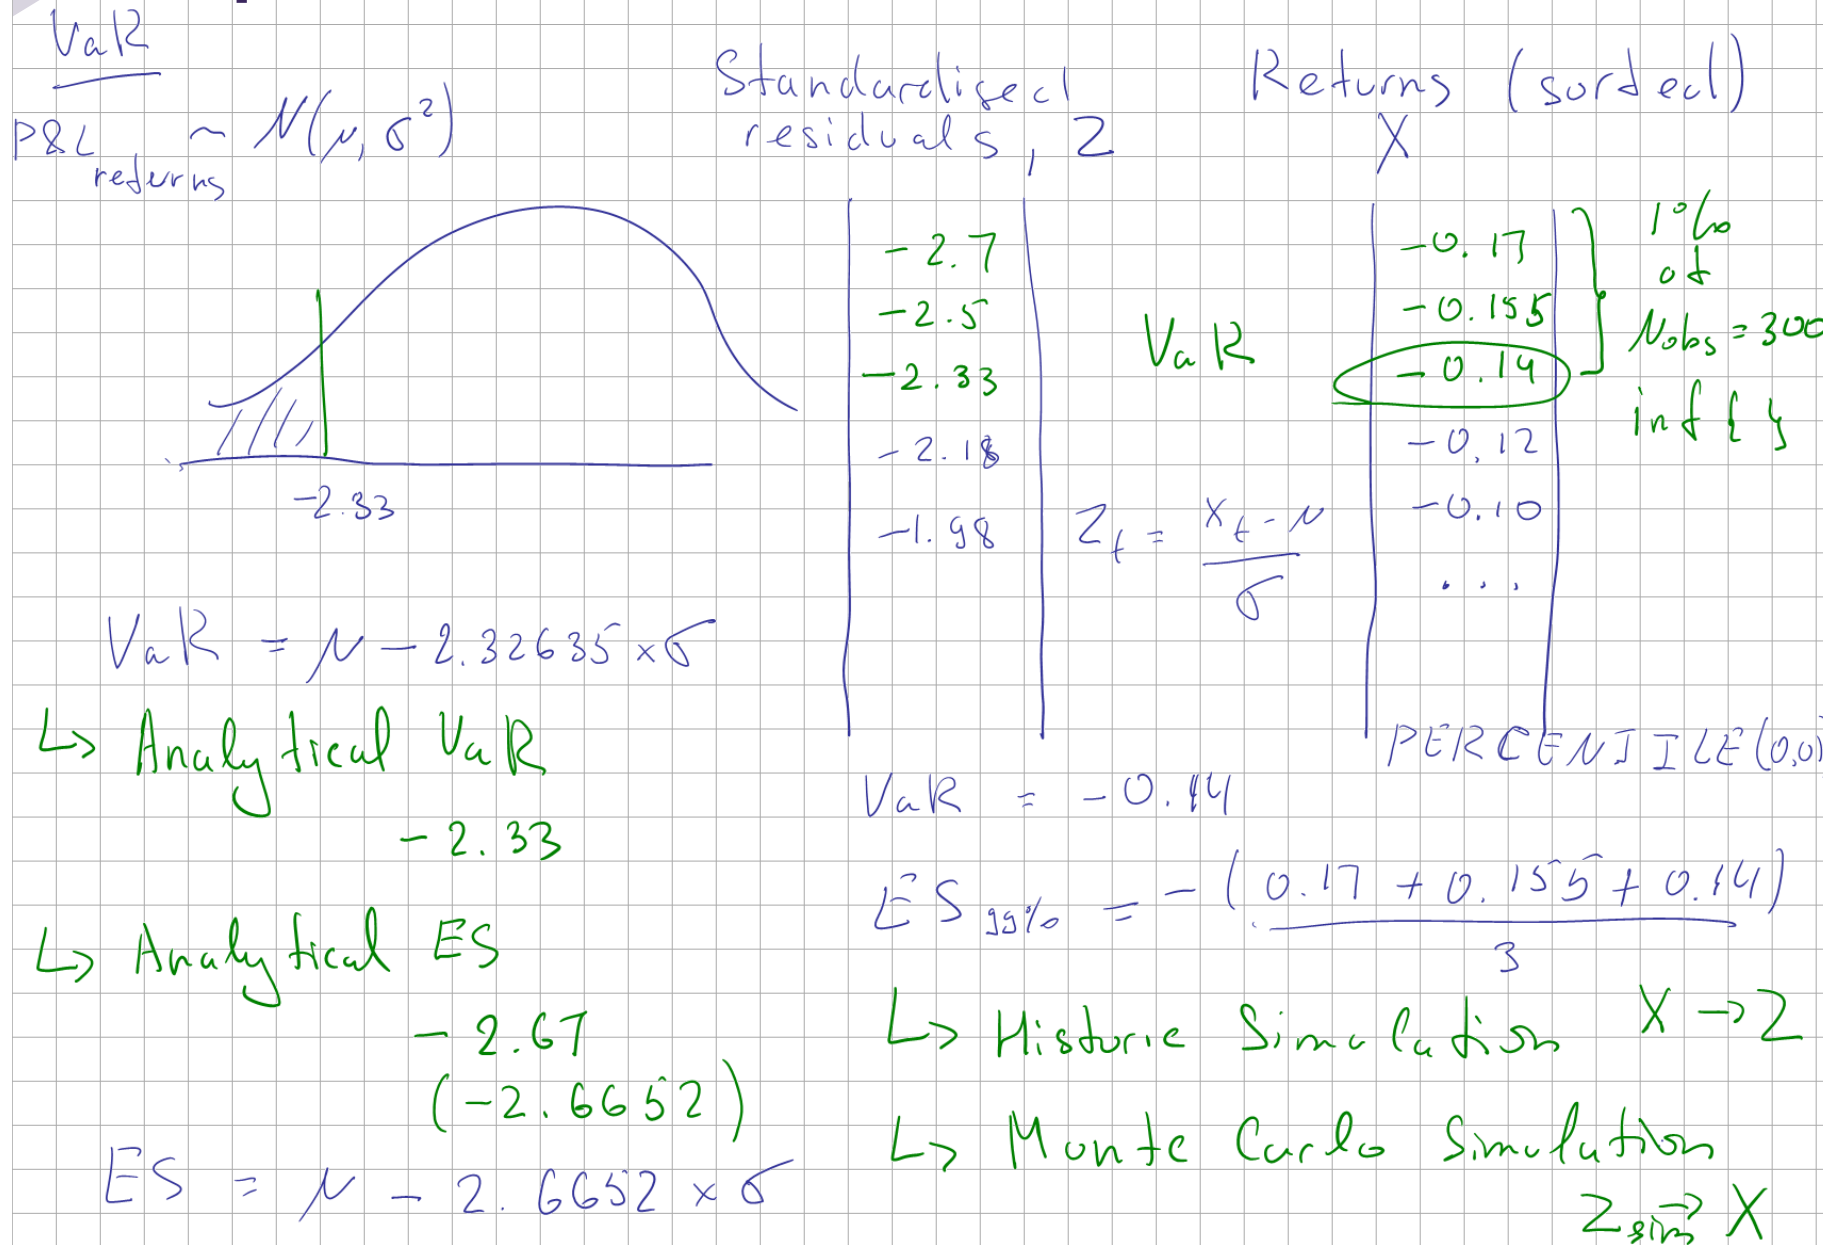 VaR
P&L returns ~ N(μ, σ²)
-2.33
VaR = μ - 2.32635 × σ
↳ Analytical VaR
-2.33
↳ Analytical ES
-2.67
(-2.6652)
ES = μ - 2.6652 × σ
Standardised
residuals, Z
-2.7
-2.5
-2.33
-2.18
-1.98
Z_t = (X_t - μ) / σ
Returns (sorded)
X
VaR
-0.17
-0.155
-0.14
-0.12
-0.10
...
1%
of
Nobs = 300
inf { }
PERCENTILE(0,0
VaR = -0.14
ES 99% = - (0.17 + 0.155 + 0.14) / 3
↳ Historic Simulation X → Z
↳ Monte Carlo Simulation
Z sim → X